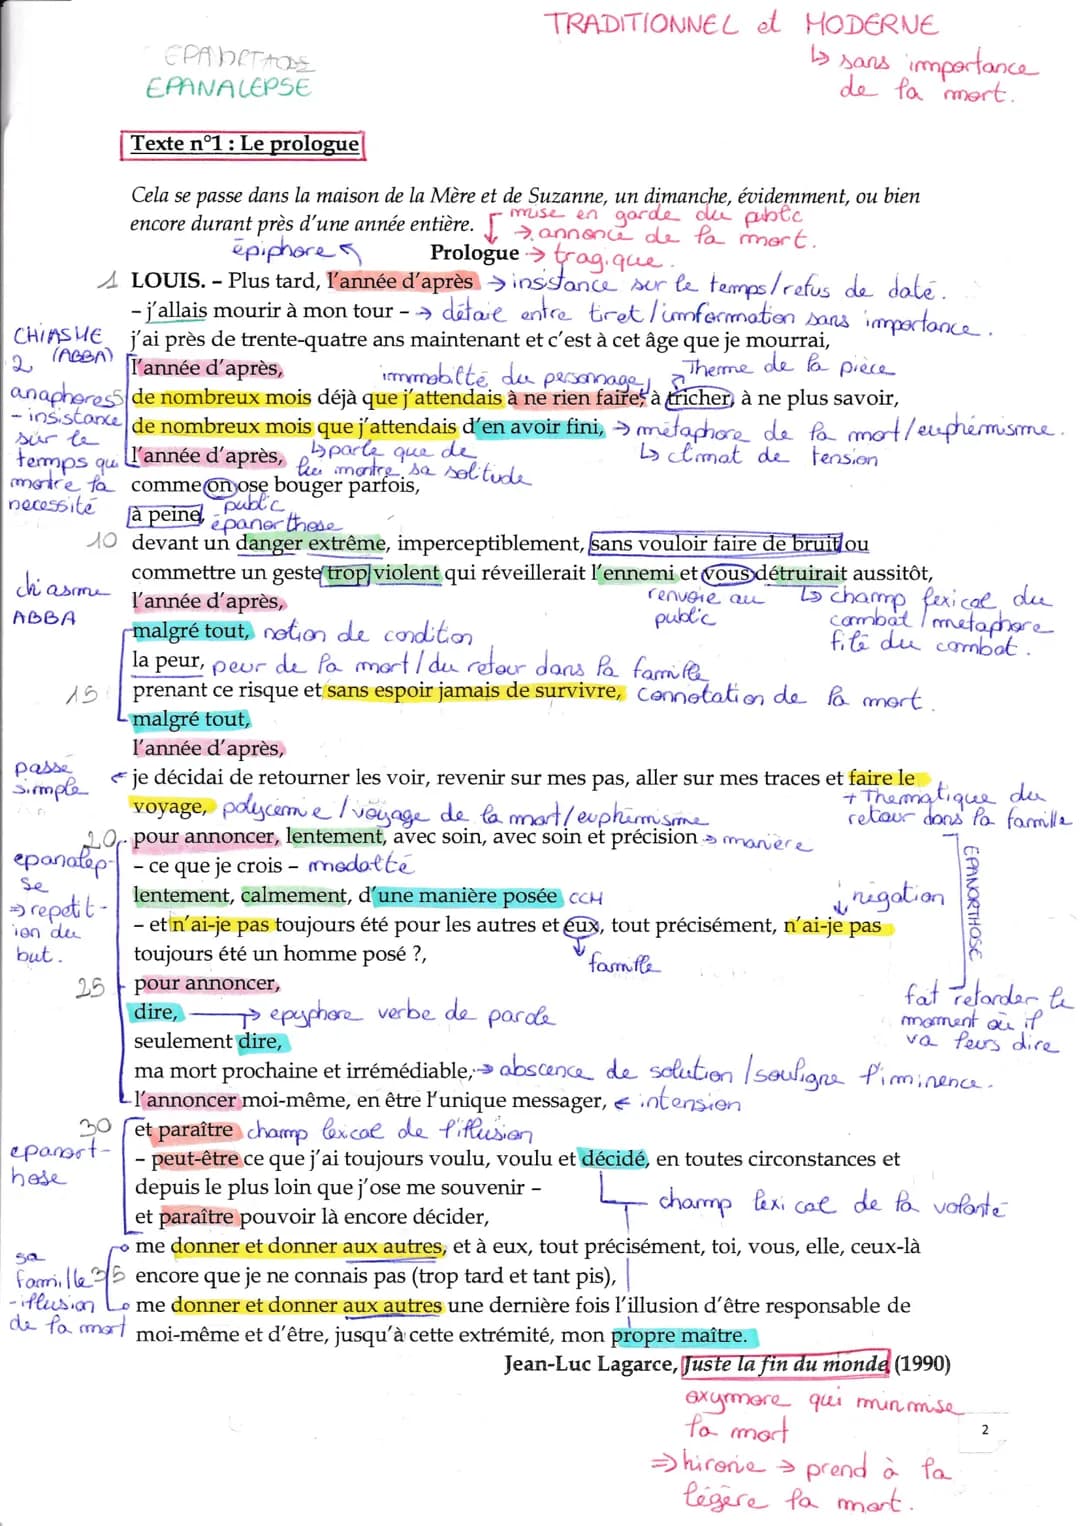 TRADITIONNEL et MODERNE
↳ sans importance
de la mort.
EPANALEPSE
Texte n°1 : Le prologue
Cela se passe dans la maison de la Mère et de Suzanne, un dimanche, évidemment, ou bien
encore durant près d'une année entière.
mise en garde du public
→ annonce de la mort.
épiphore
Prologue → tragique.
1 LOUIS. – Plus tard, l'année d'après → insistance sur le temps/refus de daté.
– j'allais mourir à mon tour – → détail entre tiret/imformation sans importance.
CHIASME
(ABBA)
j'ai près de trente-quatre ans maintenant et c'est à cet âge que je mourrai,
2
anaphores
- insistance
sur le
temps qui
montre la
necessité
l'année d'après,
immobilté du personnage
Theme de la pièce
de nombreux mois déjà que j'attendais à ne rien faire, à tricher, à ne plus savoir,
de nombreux mois que j'attendais d'en avoir fini, → métaphore de la mort/euphémisme.
l'année d'après,
↳ parle que de
lui montre sa solitude
↳ climat de tension
comme on ose bouger parfois,
public
à peine,
épanorthose
10 devant un danger extrême, imperceptiblement, sans vouloir faire de bruit ou
commettre un geste trop violent qui réveillerait l'ennemi et vous détruirait aussitôt,
chiasme
ABBA
renvoie au
public
↳ champ lexical du
combat / métaphore
filé du combat.
l'année d'après,
malgré tout, notion de condition
la peur, peur de la mort/du retour dans la famille
15 prenant ce risque et sans espoir jamais de survivre, connotation de la mort.
malgré tout,
l'année d'après,
passé
simple
je décidai de retourner les voir, revenir sur mes pas, aller sur mes traces et faire le
voyage, polycémie / voyage de la mort/euphémisme
+ Thématique du
retour dans la famille
20 pour annoncer, lentement, avec soin, avec soin et précision → manière
epanalep-
se
⇒ repetit-
ion du
but.
– ce que je crois – modalité
lentement, calmement, d'une manière posée CCM
↓ négation
– et n'ai-je pas toujours été pour les autres et eux, tout précisément, n'ai-je pas
toujours été un homme posé ?,
famille
EPANORTHOSE
fait retarder le
moment où il
va leurs dire
25 pour annoncer,
dire, → epyphore verbe de parole
seulement dire,
ma mort prochaine et irrémédiable, → abscence de solution / souligne l'iminence.
l'annoncer moi-même, en être l'unique messager, ← intension
30 et paraître champ lexical de l'illusion
epanort-
hose
– peut-être ce que j'ai toujours voulu, voulu et décidé, en toutes circonstances et
depuis le plus loin que j'ose me souvenir –
champ lexical de la volonté
et paraître pouvoir là encore décider,
sa
famille
- illusion
de la mort
me donner et donner aux autres, et à eux, tout précisément, toi, vous, elle, ceux-là
35 encore que je ne connais pas (trop tard et tant pis),
me donner et donner aux autres une dernière fois l'illusion d'être responsable de
moi-même et d'être, jusqu'à cette extrémité, mon propre maître.
Jean-Luc Lagarce, Juste la fin du monde (1990)
oxymore qui minmise
la mort
⇒ hironie → prend à la
légère la mort.
2